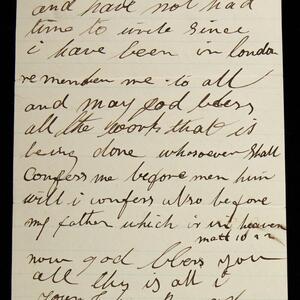 and have not had
time to write since
i have been in london
remember me to all
and may god bless
all the work that is
being done whosoever shall
Confess me before men him
will i confess also before
my father which is in heaven
matt 10
now god bless you
all this is all i